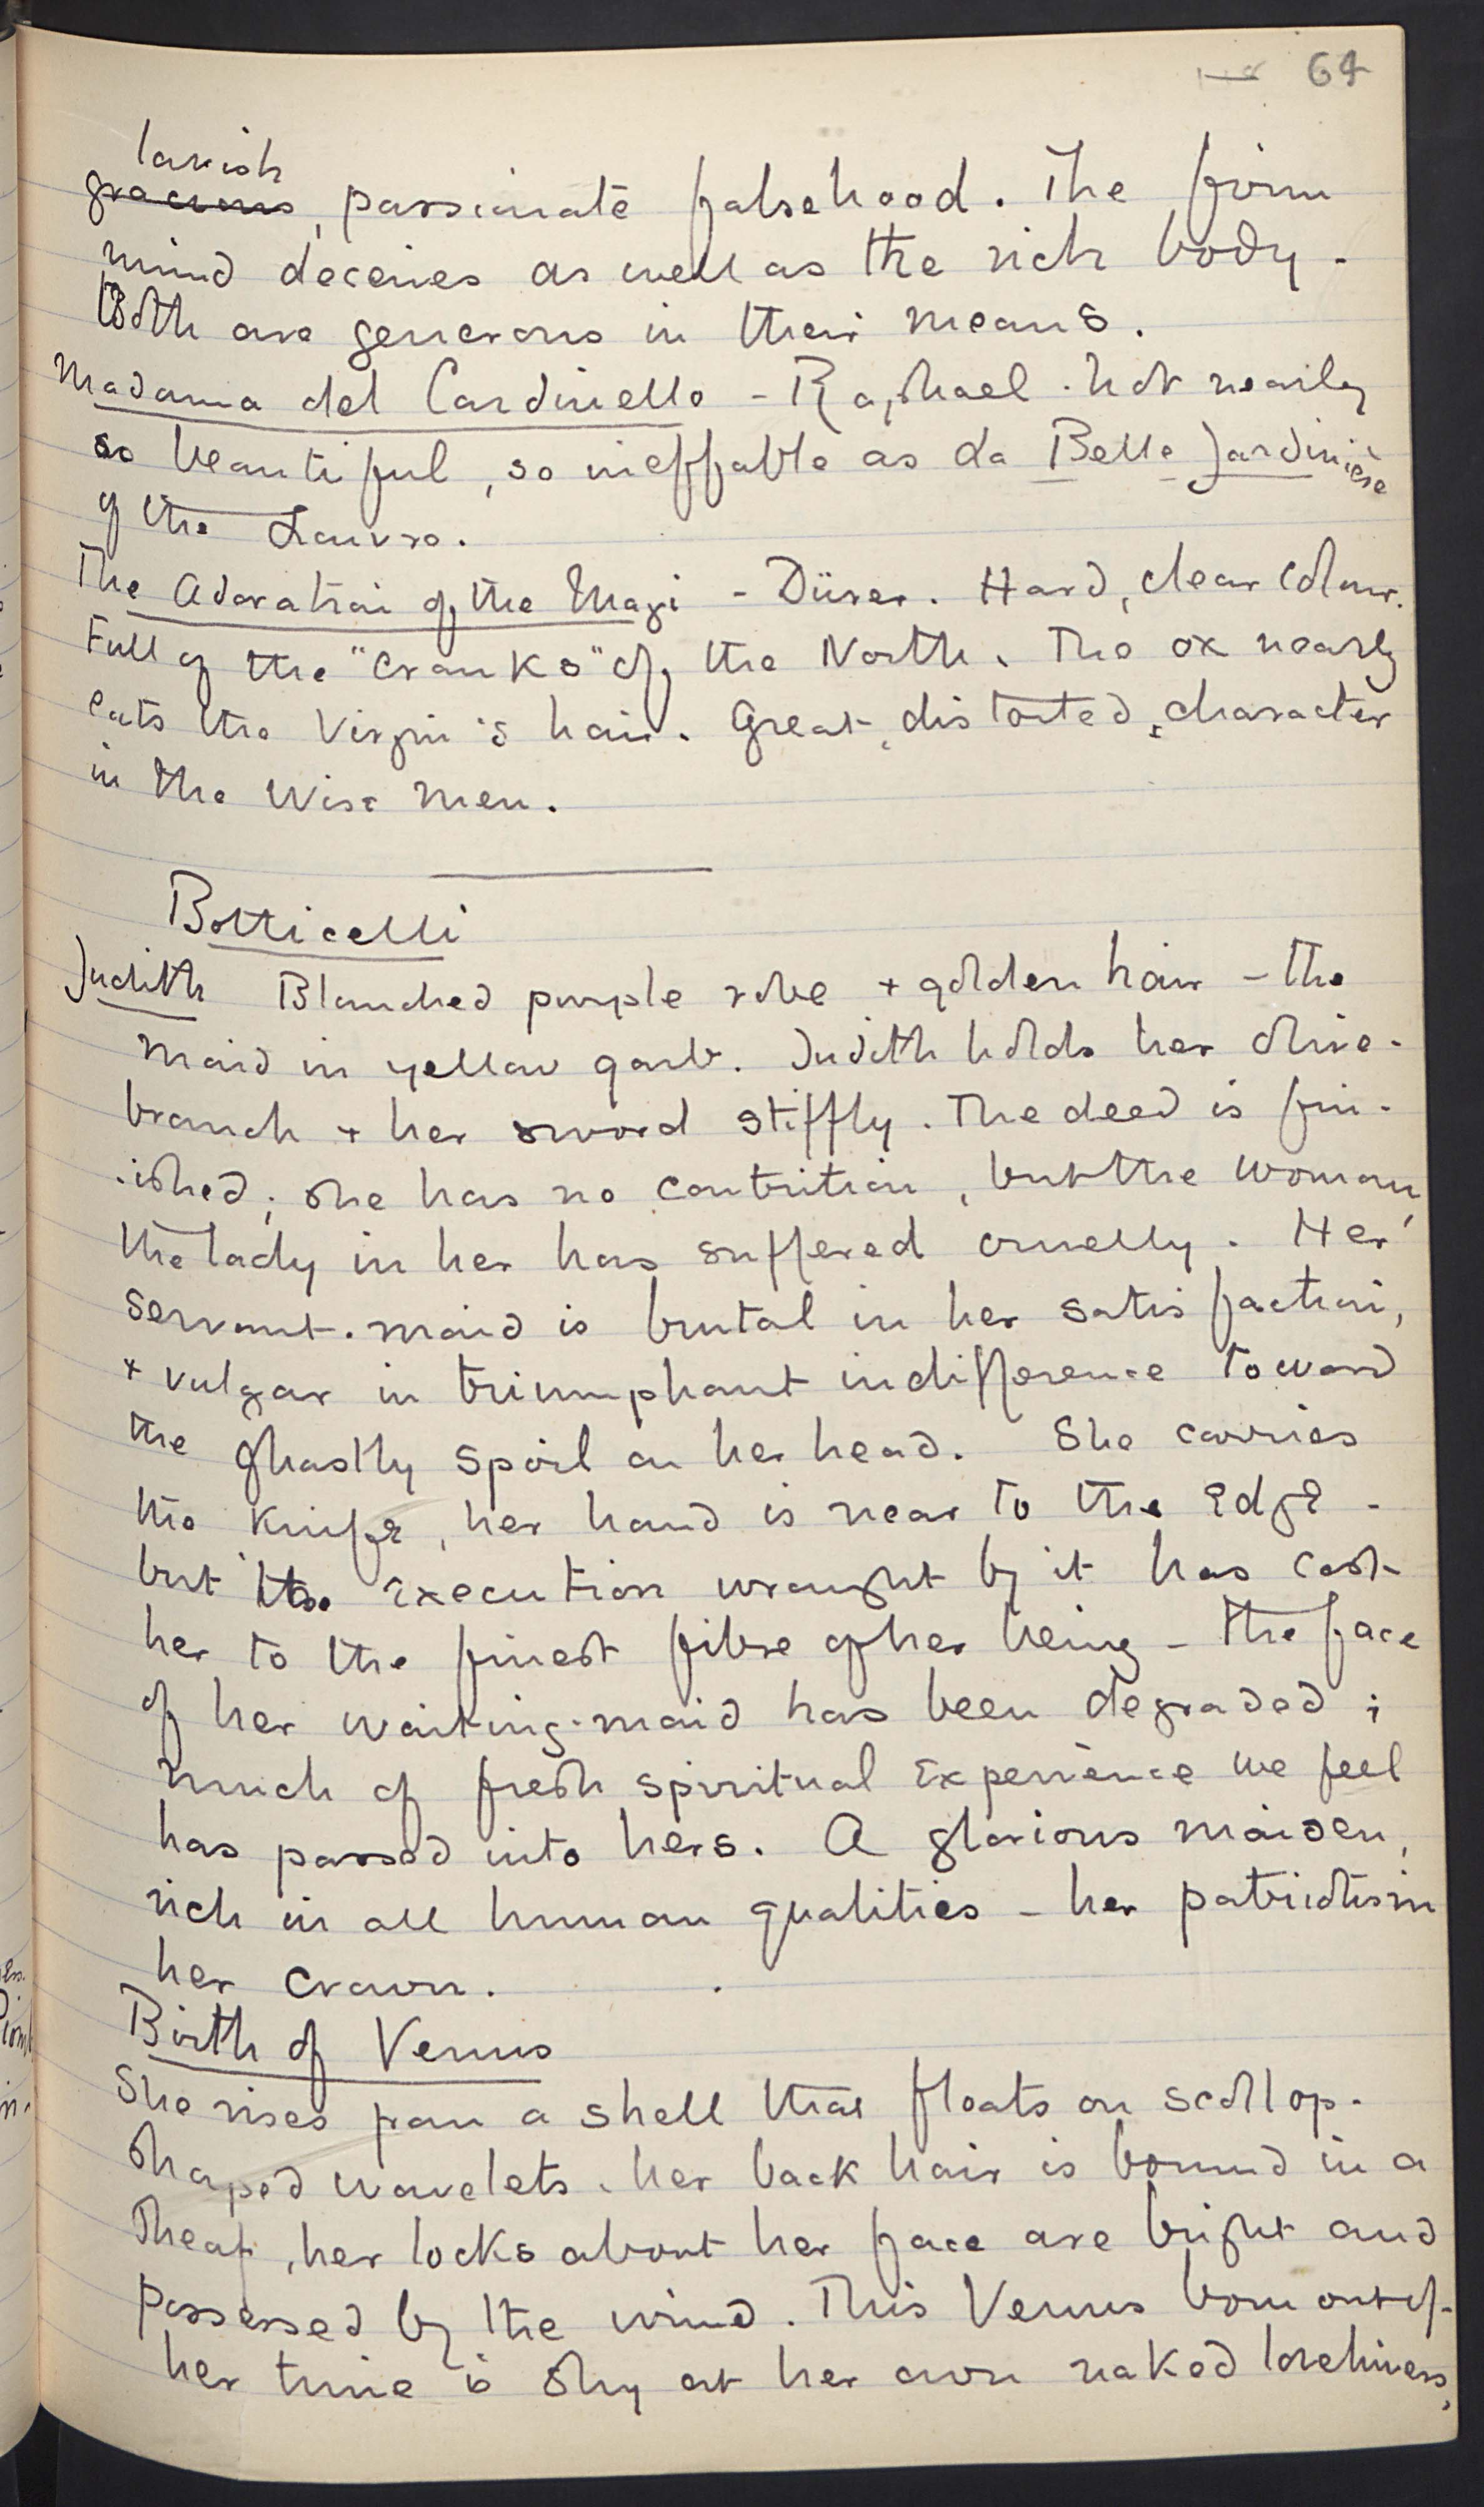 64
lavish
gracious, passionate falsehood. The firm
mind deceives as well as the rich body.
Both are generous in their means.
Madonna del Cardinello - Raphael. Not nearly
so beautiful, so ineffable as La Belle Jardinière
of the Louvre.
The Adoration of the Magi - Dürer. Hard, clear colour.
Full of the "cranks" of the North. The ox nearly
eats the Virgin's hair. Great, distorted, character
in the Wise Men.
Botticelli
Judith Blanched purple robe + golden hair - the
maid in yellow garb. Judith holds her olive-
branch + her sword stiffly. The deed is fin-
-ished; she has no contrition, but the woman,
the lady in her has suffered cruelly. Her
servant-maid is brutal in her satisfaction,
+ vulgar in triumphant indifference toward
the ghastly spoil on her head. She carries
the knife, her hand is near to the edge -
but the execution wrought by it has cost
her to the finest fibre of her being - the face
of her waiting-maid has been degraded;
much of fresh spiritual experience we feel
has passed into hers. A glorious maiden,
rich in all human qualities - her patriotism
her crown.
Birth of Venus
She rises from a shell that floats on scollop-
shaped wavelets. her back hair is bound in a
sheaf, her locks about her face are bright and
possessed by the wind. This Venus born out of
her time is shy at her own naked loveliness,